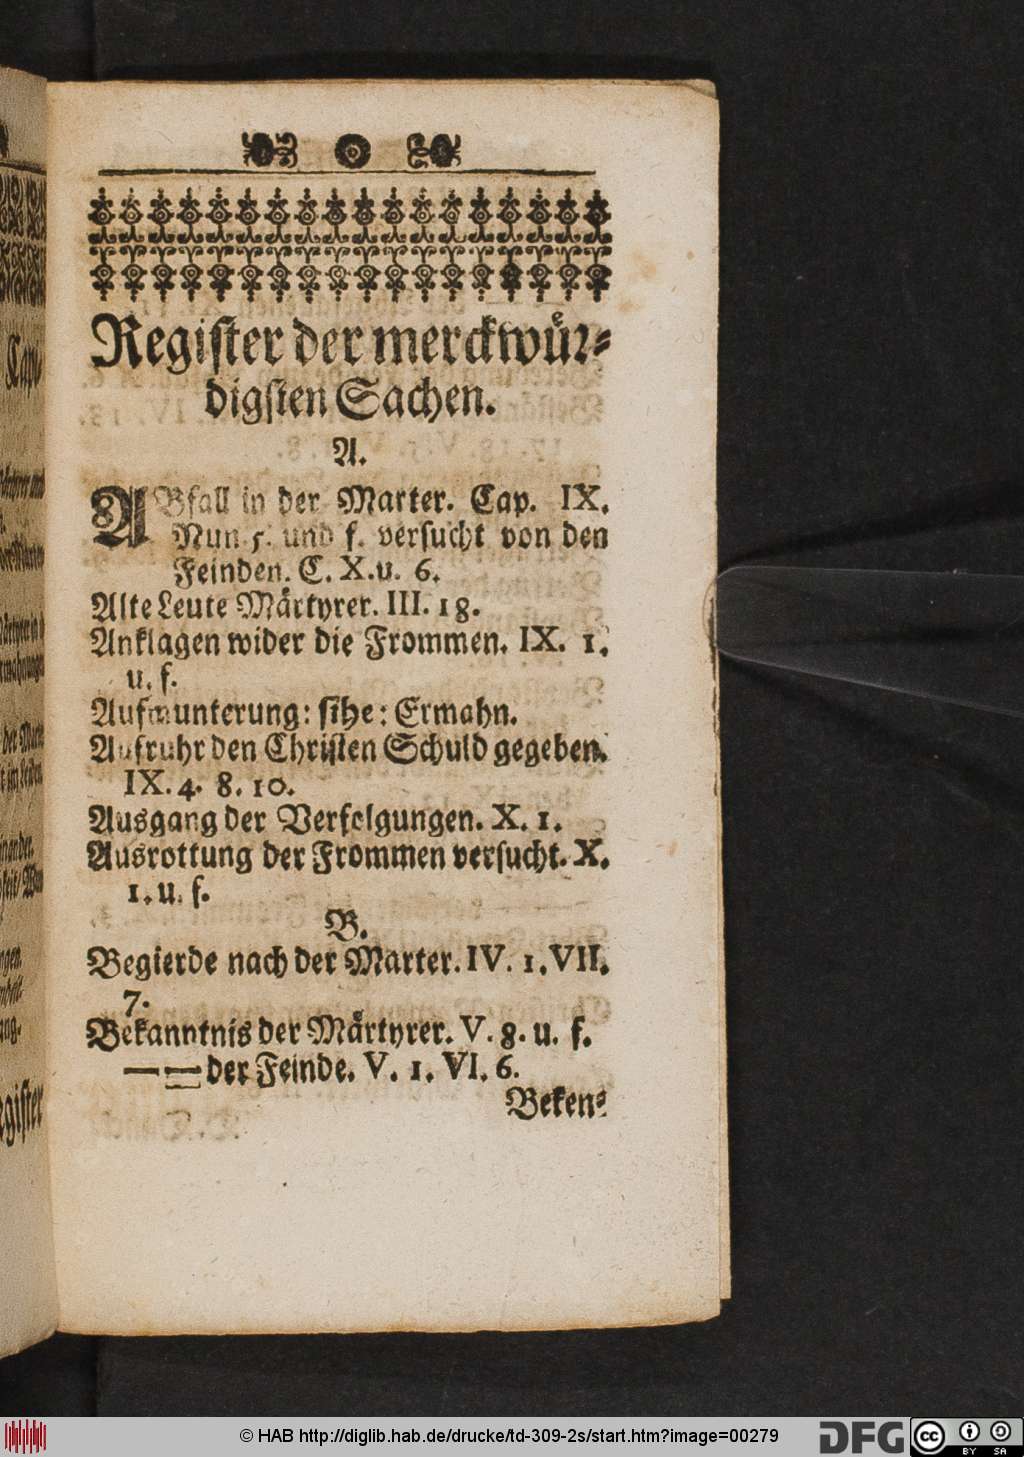 Register der merckwür-
digsten Sachen.
A.
ABfall in der Marter. Cap. IX.
Num 5. und f. versucht von den
Feinden. C. X.u. 6.
Alte Leute Märtyrer. III. 18.
Anklagen wider die Frommen. IX. 1.
u. f.
Aufmunterung: sihe: Ermahn.
Aufruhr den Christen Schuld gegeben.
IX. 4. 8. 10.
Ausgang der Verfolgungen. X. 1.
Ausrottung der Frommen versucht. X.
1. u. f.
B.
Begierde nach der Marter. IV. 1. VII.
7.
Bekanntnis der Märtyrer. V. 8. u. f.
— — der Feinde. V. 1. VI. 6.
Beken-
© HAB http://diglib.hab.de/drucke/td-309-2s/start.htm?image=00279
DFG
cc
BY SA